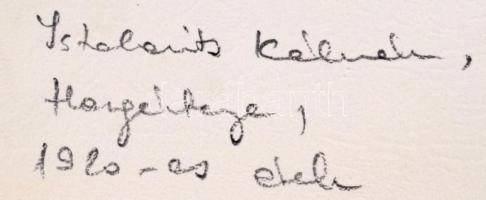 Istokovits Kálmán,
Hargitája,
1920-as évek